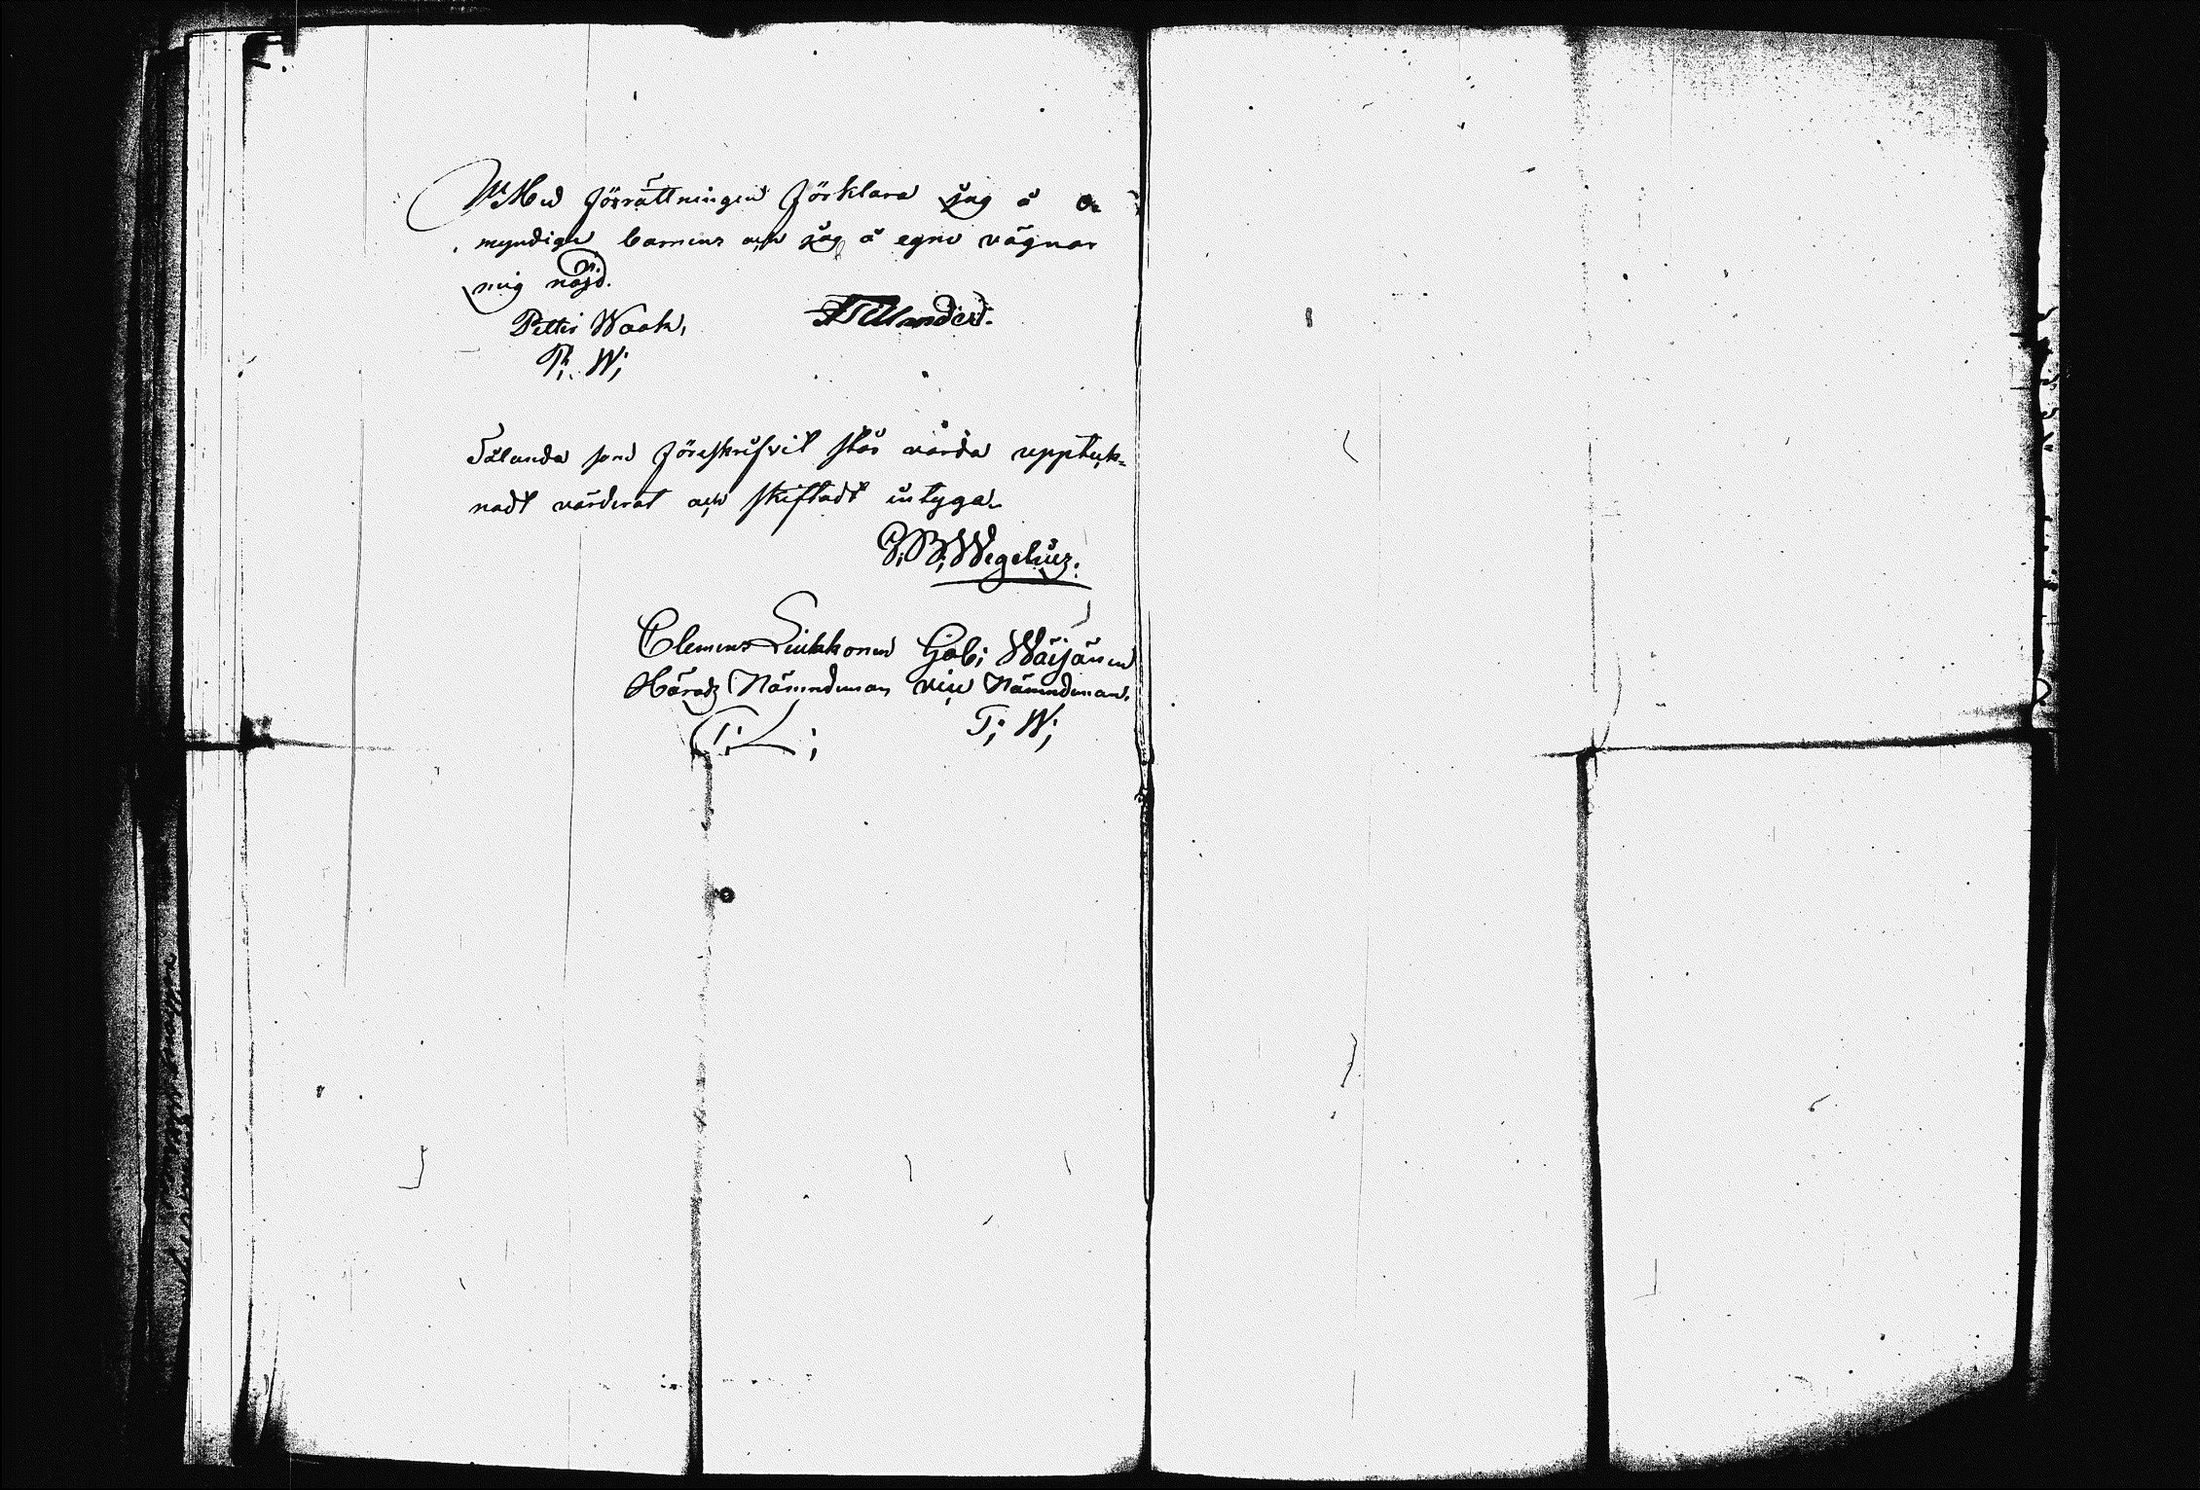 Med förrättningen förklara jag å o
myndige barnens och jag å egne vägnar
mig nöjd.
Petter Waak,
P; W;
Sålunda som föreskrifvit står vara upptek-
nadt värderat och skiftadt intyga.
Wegelius.
Clemens Liukkonen Gab; Wäisänen
Härads Nämndeman vice Nämndeman.
T; W;